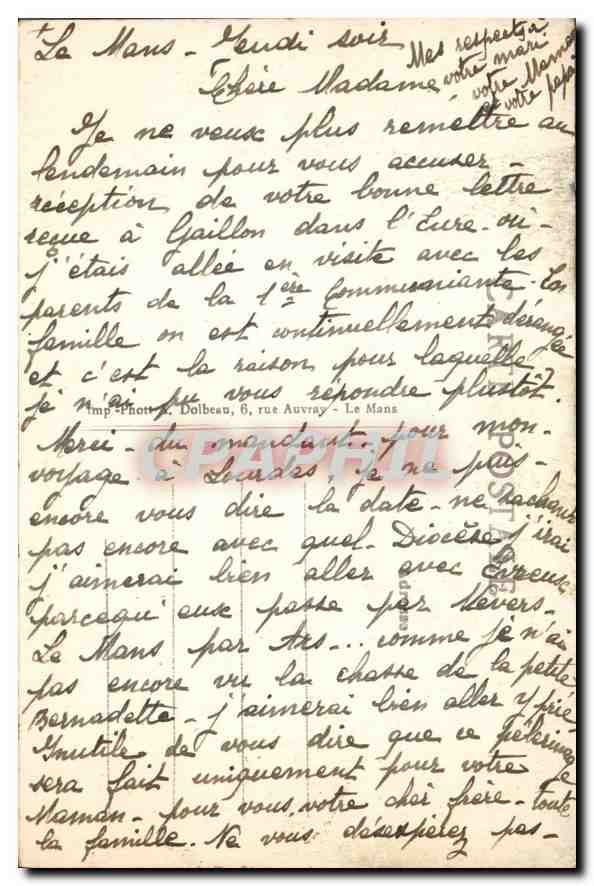 Le Mans - Jeudi soir
Mes respects à
votre mari
votre Maman
et votre papa
Chère Madame,
Je ne veux plus remettre au
lendemain pour vous accuser -
réception de votre bonne lettre
reçue à Gaillon dans l'Eure - où -
j'étais allée en visite avec les
parents de la 1ère Communiante. En
famille on est continuellement dérangée
et c'est la raison pour laquelle
je n'ai pu vous répondre plustôt.
Imp-Phot A. Dolbeau, 6, rue Auvray - Le Mans
Merci - du mandant.. pour mon -
voyage à Lourdes, je ne puis -
encore vous dire la date - ne sachant
pas encore avec quel - Diocèse j'irai
j'aimerai bien aller avec Evreux
parcequ'eux passe par Nevers -
Le Mans par Ars... comme je n'ai
pas encore vu la chasse de la petite
Bernadette - j'aimerai bien aller y prié
Inutile de vous dire que ce pélerinage
sera fait uniquement pour votre
Maman - pour vous, votre cher frère - toute
la famille. Ne vous désespérez pas -
CARTE POSTALE
Adresse
CPAPHIL